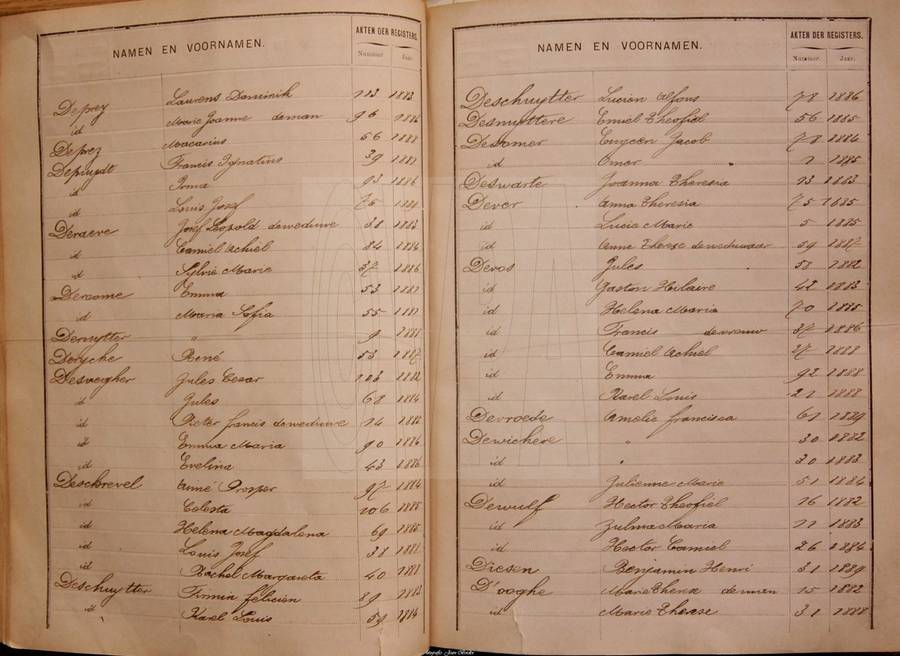 NAMEN EN VOORNAMEN. AKTEN DER REGISTERS.
Nummer. Jaar.
Deprey Laurens Dominik 113 1883
id Marie Joanne deman 96 1886
Deprez Macarius 66 1888
Depruydt Francis Ignatius 39 1881
id Irma 93 1886
id Louis Jozef 76 1881
Deraeve Jozef Leopold deweduwe 38 1883
id Camiel Achiel 84 1884
id Sylvie Marie 37 1886
Deroome Emma 53 1881
id Maria Sofia 55 1881
Deruytter " 9
Deryche René 53 1887
Desvergher Jules Cesar 103 1882
id Jules 68 1884
id Pieter francis deweduwe 14 1882
id Emma Maria 90 1886
id Evelina 43 1886
Deschrevel Anné Prosper 97 1884
id Celesta 106 1885
id Helena Magdalena 69 1885
id Louis Jozef 38 1888
id Rachel Margareta 40 1888
Deschuytter Firmin félicien 89 1883
id Karel Louis 59 1884
NAMEN EN VOORNAMEN. AKTEN DER REGISTERS.
Nummer. Jaar.
Deschuytter Lucian Alfons 78 1886
Desmyttere Emiel Theofiel 56 1885
Desomer Jacob 78 1884
id Omer 1 1885
Deswarte Joanna Theresia 13 1883
Dever Anna Theresia 75 1885
id Lucia Marie 5 1885
id Anne Therese deweduwaar 59 1887
Devos Jules 58 1882
id Gaston Hilaire 42 1883
id Helena Maria 70 1885
id Francis devrouw 37 1886
id Camiel Achiel 27 1888
id Emma 92 1888
id Karel Louis 21 1888
Devroede Amelie francisca 61 1889
Dewichere " 30 1882
id " 30 1883
id Julienne Marie 51 1886
Dewulf Hector Theofiel 16 1882
id Zulma Maria 11 1883
id Hector Camiel 26 1884
Diesen Benjamin Henri 31 1889
D'ooghe Marie Theresa deman 15 1882
id Marie Therese 31 1888